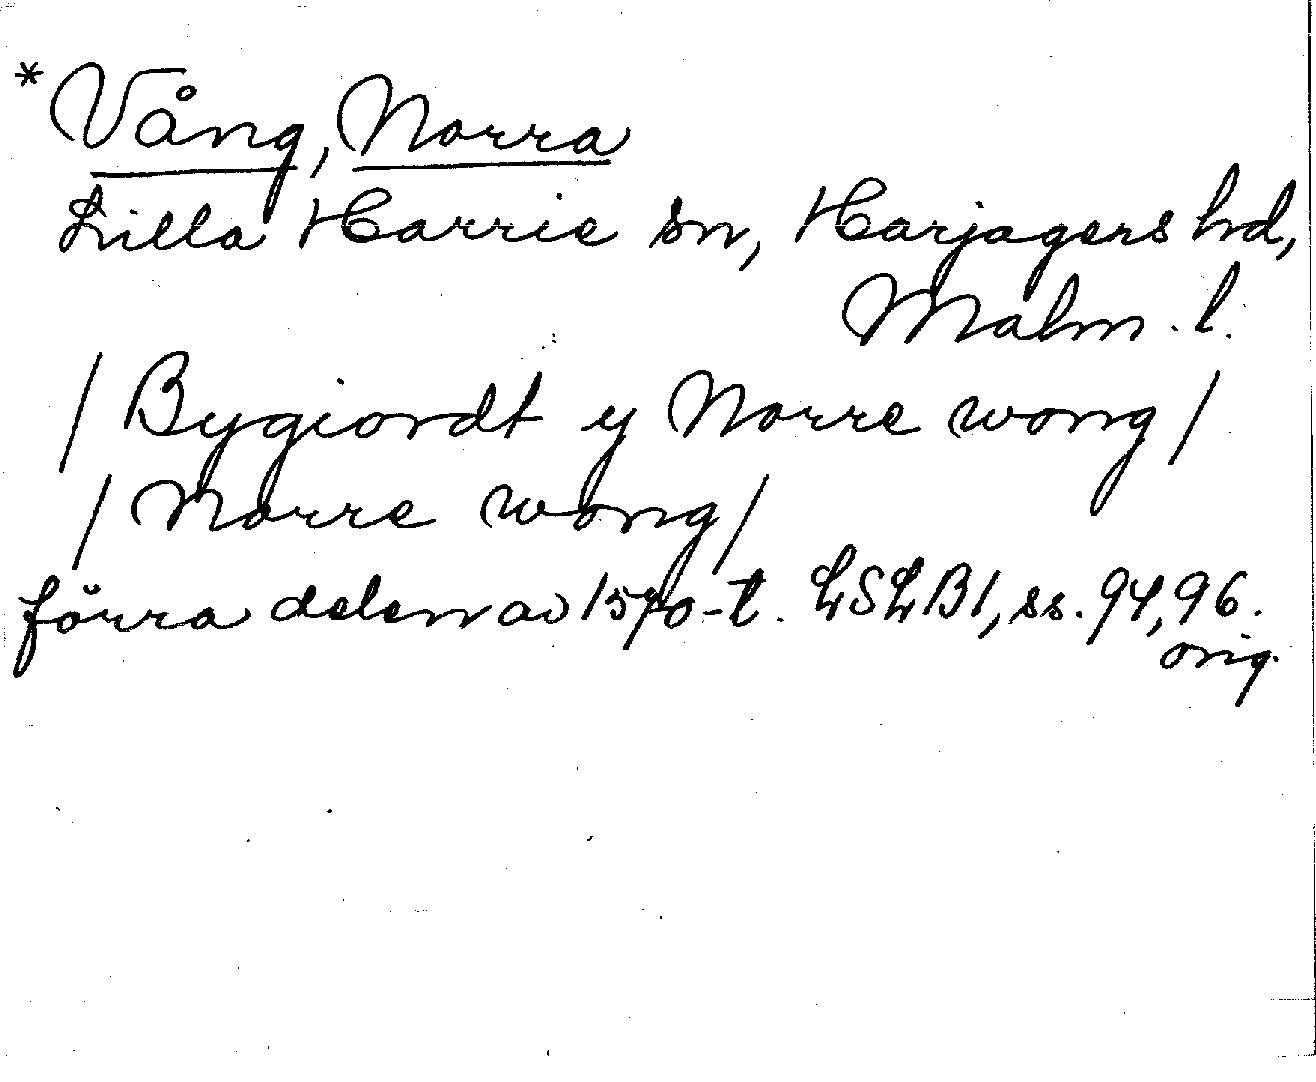 *Vång, Norra
Lilla Harrie sn, Harjagers hd,
Malm. l.
/ Bygiordt y Norre wong /
/ Norre wong /
förra delen av 1570-t. LSLB1, ss. 94, 96.
orig.